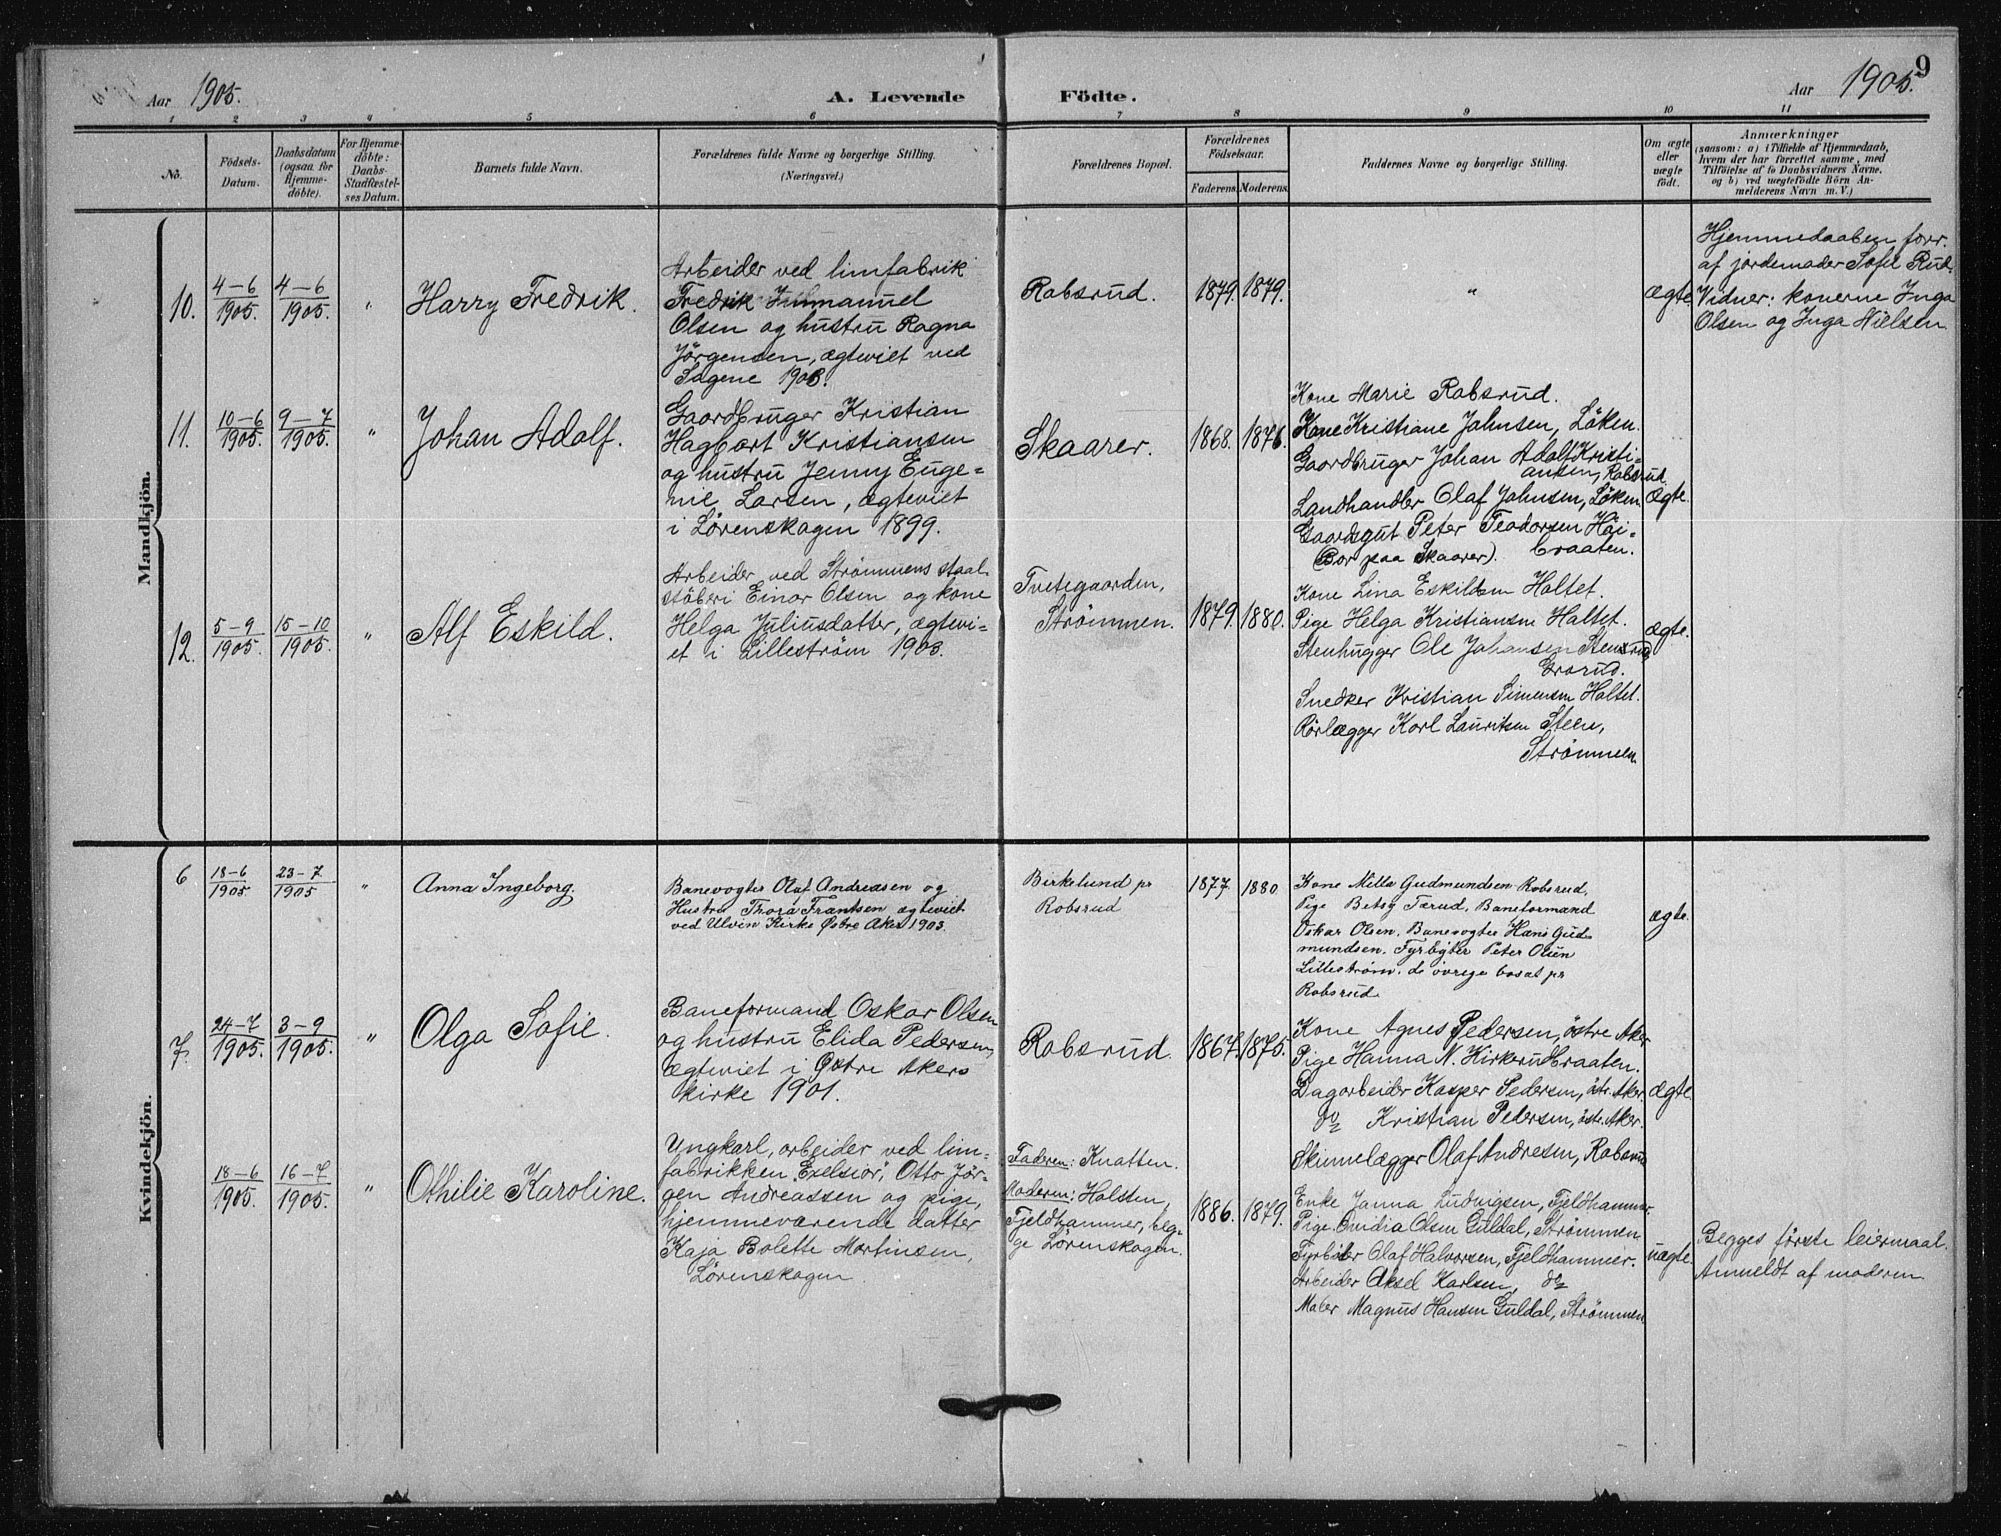 9
Aar 1905.
A. Levende Födte.
Aar 1905.
1 2 3 4 5 6 7 8 9 10 11
No.
Födsels-
Datum.
Daabsdatum
(ogsaa for
Hjemme-
döbte).
For Hjemme-
döbte:
Daabs-
Stadfæstel-
ses Datum.
Barnets fulde Navn.
Forældrenes fulde Navne og borgerlige Stilling.
(Næringsvei.)
Forældrenes Bopæl.
Forældrenes
Födselsaar.
Faderens. Moderens.
Faddernes Navne og borgerlige Stilling.
Om ægte
eller
uægte
födt.
Anmærkninger
(saasom: a) i Tilfælde af Hjemmedaab,
hvem der har forrettet samme, med
Tilföielse af to Daabsvidners Navne,
og b) ved uægtefödte Börn An-
melderens Navn m. V.)
Mandkjön.
10.
4-6
1905.
4-6
1905.
"
Harry Fredrik.
Arbeider ved limfabrik
Fredrik Immanuel
Olsen og hustru Ragna
Jörgensen, ægteviet ved
Sagene 1903.
Robsrud.
1879. 1879.
"
ægte
Hjemmedaaben forr.
af jordemoder Sofie Rud.
Vidner: konerne Inga
Olsen og Inga Nielsen
11.
10-6
1905.
9-7
1905.
"
Johan Adolf.
Gaardbruger Kristian
Hagbart Kristiansen
og hustru Jenny Euge=
nie Larsen, ægteviet
i Lørenskogen 1899.
Skaarer.
1868. 1876.
Kone Marie Robsrud.
Kone Kristiane Johnsen, Löken.
Gaardbruger Johan Adolf Kristi=
ansen, Robsrud.
Landhandler Olaf Johnsen, Löken
Gaardsgut Peter Teodorsen Høi=
(Bor paa Skaarer). braaten.
ægte.
12.
5-9
1905.
15-10
1905.
"
Alf Eskild.
Arbeider ved Strømmens staal=
stöberi Einar Olsen og kone
Helga Juliusdatter, ægtevi=
et i Lilleström 1903.
Tvetegaarden,
Strømmen.
1879. 1880.
Kone Lina Eskildsen Holtet.
Pige Helga Kristiansen Holtet.
Stenhugger Ole Johansen Stensrud,
Grorud.
Snedker Kristian Simensen Holtet.
Rörlægger Karl Lauritsen Steen,
Strømmen
ægte.
Kvindekjön.
6
18-6
1905
23-7
1905
"
Anna Ingeborg.
Banevogter Olaf Andreasen og
Hustru Thora Frantsen ægteviet
ved Ulvin Kirke Østre Aker 1903.
Birkelund pr
Robsrud
1877. 1880
Kone Milla Gudmundsen Robsrud.
Pige Betsy Tærud, Baneformand
Oskar Olsen. Banevogter Hans Gud
mundsen. Fyrbøter Peter Olsen
Lillestrøm. de øvrige bosat pr
Robsrud
ægte.
7.
24-7
1905.
3-9
1905.
"
Olga Sofie.
Baneformand Oskar Olsen
og hustru Elida Pedersen,
ægteviet i Østre Akers
kirke 1901.
Robsrud.
1867. 1875.
Kone Agnes Pedersen, östre Aker
Pige Hanna N. Kirkerudbraaten.
Dagarbeider Kasper Pedersen, östr. Aker.
do Kristian Pedersen, östr. Aker.
Skinnelægger Olaf Andresen, Robsrud
ægte
18-6
1905.
16-7
1905.
"
Othilie Karoline.
Ungkarl, arbeider ved lim=
fabrikken "Exelsior", Otto Jör=
gen Andreassen og pige,
hjemmeværende datter
Kaja Bolette Martinsen,
Lørenskogen
Faderen: Knatten.
Moderen: Holsten,
Fjeldhammer, beg=
ge Lörenskogen.
1886. 1879.
Enke Janna Ludvigsen, Fjeldhammer.
Pige Ovidia Olsen Guldal, Strömmen
Fyrböter Olaf Halvorsen, Fjeldhammer.
Arbeider Aksel Karlsen, do
Maler Magnus Hansen Guldal, Strömmen.
uægte
Begges förste leiermaal.
Anmeldt af moderen